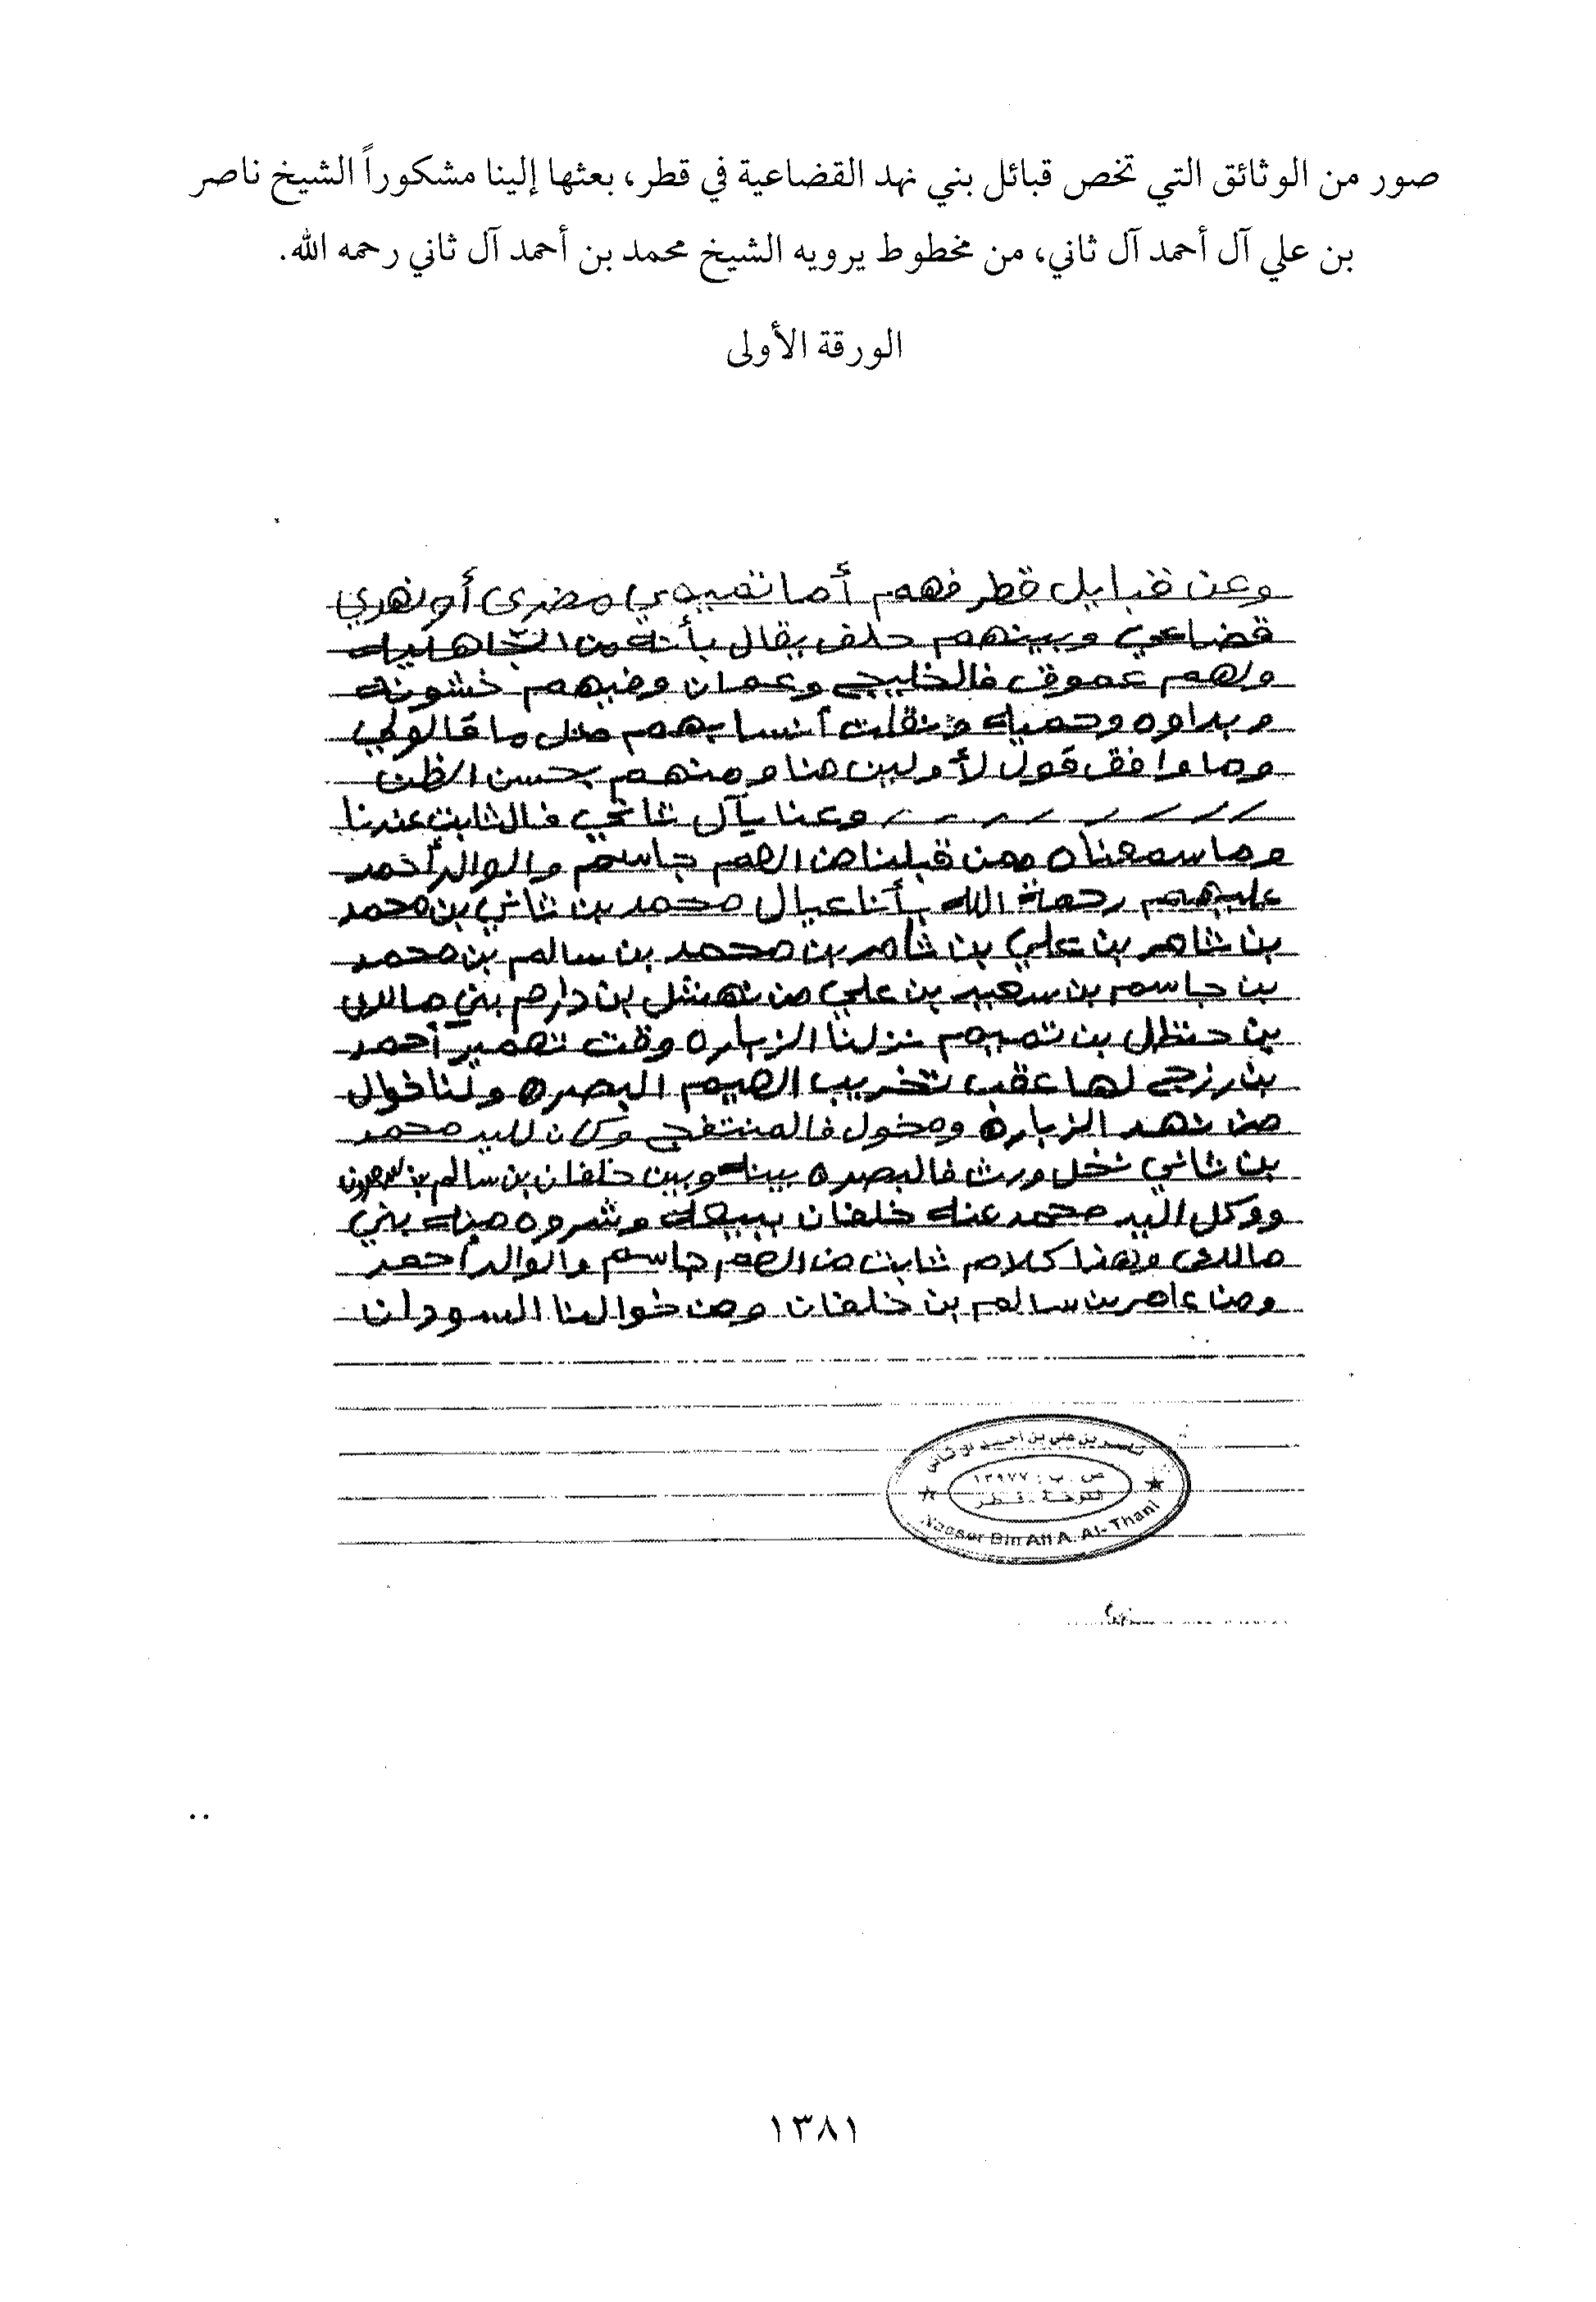 صور من الوثائق التي تخص قبائل بني نهد القضاعية في قطر، بعثها إلينا مشكوراً الشيخ ناصر
بن علي آل أحمد آل ثاني، من مخطوط يرويه الشيخ محمد بن أحمد آل ثاني رحمه الله.
الورقة الأولى
وعن قبايل قطر فهم أما تميمي مضري أو نهدي
قضاعي وبينهم حلف يقال بأنه من الجاهليه
ولهم عموق فالخليج وعمان وفيهم خشونه
وبداوه وحميه ونقلت أنسابهم مثل ما قالولي
وما وافق قول لأولين منا ومنهم بحسن الظن
وعنا يآل ثاني فالثابت عندنا
وما سمعناه ممن قبلنا من العم جاسم والوالد أحمد
عليهم رحمة الله بأنا عيال محمد بن ثاني بن محمد
بن ثامر بن علي بن ثامر بن محمد بن سالم بن محمد
بن جاسم بن سعيد بن علي من نهشل بن دارم بني مالك
بن حنظل بن تميم نزلنا الزباره وقت تعمير أحمد
بن رزج لها عقب تخريب العيم البصره ولنا خوال
من نهد الزباره وخول فالمنتفج وكان لليد محمد
بن ثاني نخل ورث فالبصره بينه وبين خلفان بن سالم بن
ووكل اليد محمد عنه خلفان ببيعه وشروه منه بني
مالك وهذا كلام ثابت من العم جاسم والوالد أحمد
ومن عامر بن سالم بن خلفان ومن خوالنا السودان
ناصر بن علي بن أحمد آل ثاني
ص . ب : ١٣٩٧٧
الدوحة - قطر
Nasser Bin Ali A. Al-Thani
١٣٨١